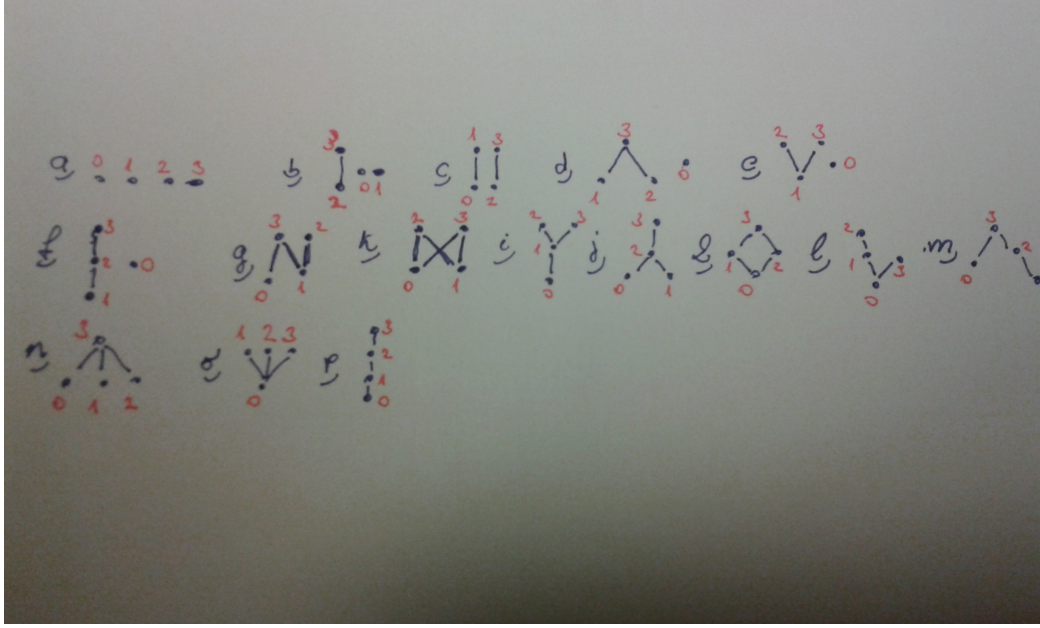 a) 0 1 2 3 b) 3 2 0 1 c) 1 3 0 2 d) 3 1 2 0 e) 2 3 1 0
f) 3 2 0 1 g) 3 2 0 1 h) 2 3 0 1 i) 2 3 1 0 j) 3 2 0 1 k) 3 1 2 0 l) 2 1 3 0 m) 3 2 0
n) 3 0 1 2 o) 1 2 3 0 p) 3 2 1 0